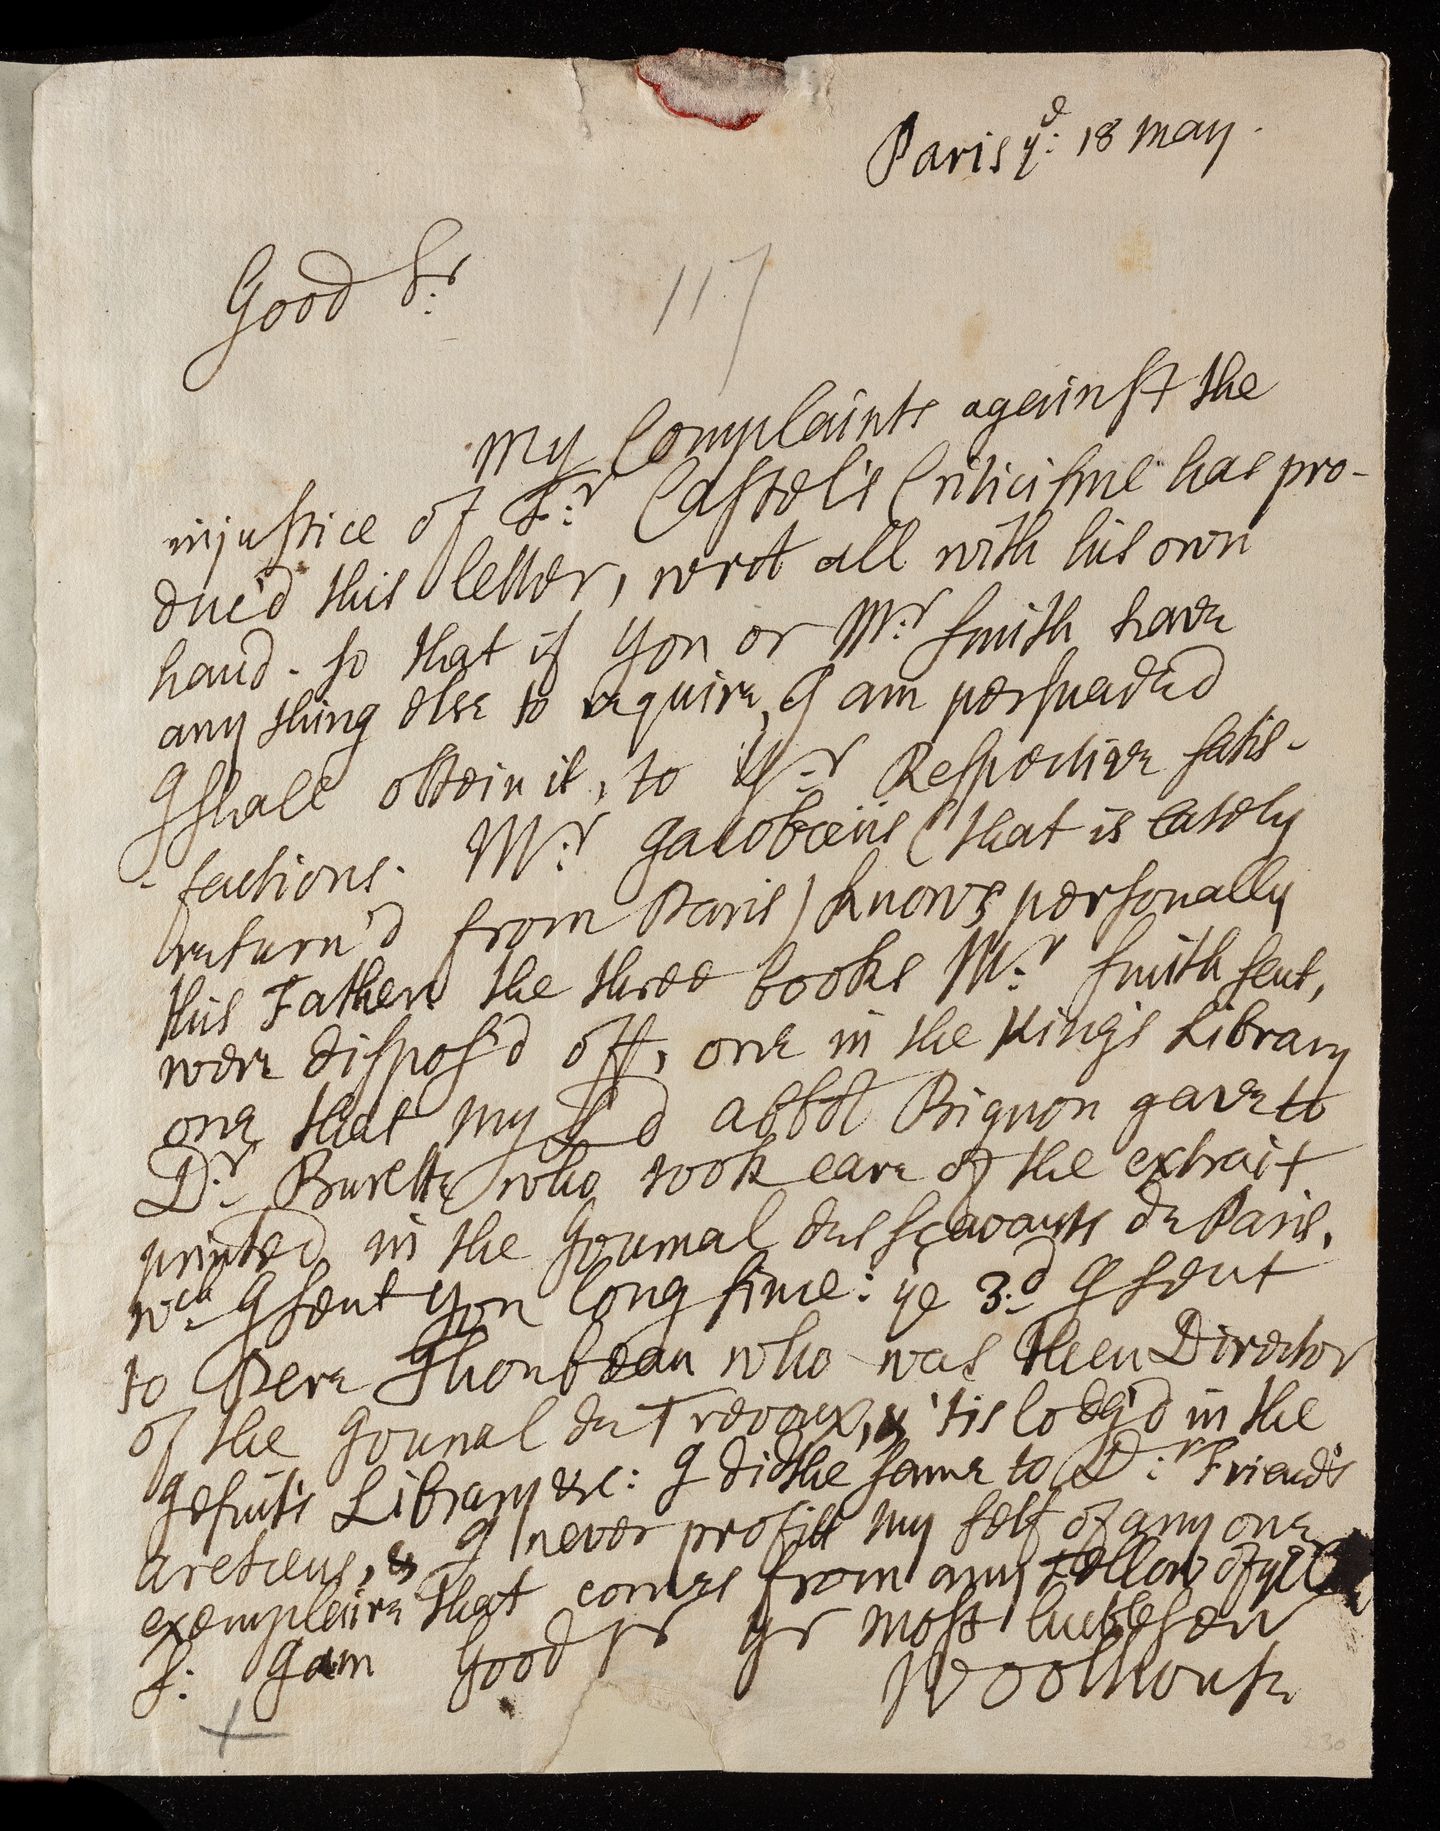 Paris ye: 18 may.
117
Good Sr:
My Complaints against the
injustice of Fr: Castel's Criticisme has pro-
duc'd this letter, wrot all with his own
hand. so that if you or Mr: Smith have
any thing else to require, I am persuaded
I shall obtein it, to Yr: Respective satis-
-factions. Mr: Jacobæus (that is lately
return'd from Paris) knows personally
this Father. the three books Mr: Smith sent,
were dispos'd off, one in the King's Library
one that my Ld abbot Bignon gave to
Dr: Burette who took care of the extrait
printed in the Journal des sçavants de Paris.
wch: I sent you long sime: ye 3d: I sent
to Pere Thoubeau who was then Director
of the Journal de Trevoux, & 'tis lodg'd in the
Jesuit's Library &c: I did the same to Dr: Friend's
areteus, & I never profitt my self of any one
exemplaire that comes from any fellow of ye
S: I am Good Sr yr most humble serv
Woolhouse
230